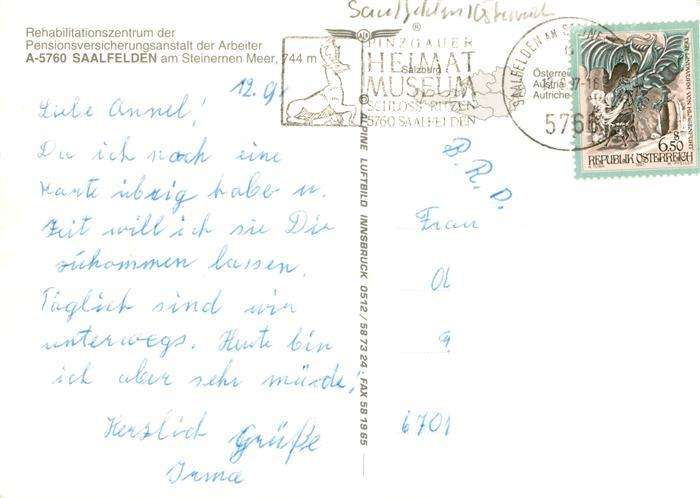 Saalfelden/Österreich
Rehabilitationszentrum der
Pensionsversicherungsanstalt der Arbeiter
A-5760 SAALFELDEN am Steinernen Meer, 744 m
Salzburg
Österreich
Austria
Autriche
PINZGAUER
HEIMAT
MUSEUM
SCHLOSS RITZEN
5760 SAALFELDEN
SAALFELDEN AM
5760
S
6.50
REPUBLIK ÖSTERREICH
12.9.
Liebe Annel!
Da ich noch eine
Karte übrig habe u.
Zeit will ich sie Dir
zukommen lassen.
Täglich sind wir
unterwegs. Heute bin
ich aber sehr müde,
Herzlich Grüße
Irma
ALPINE LUFTBILD INNSBRUCK 0512/587324, FAX 581985
B.R.D.
Frau
6701